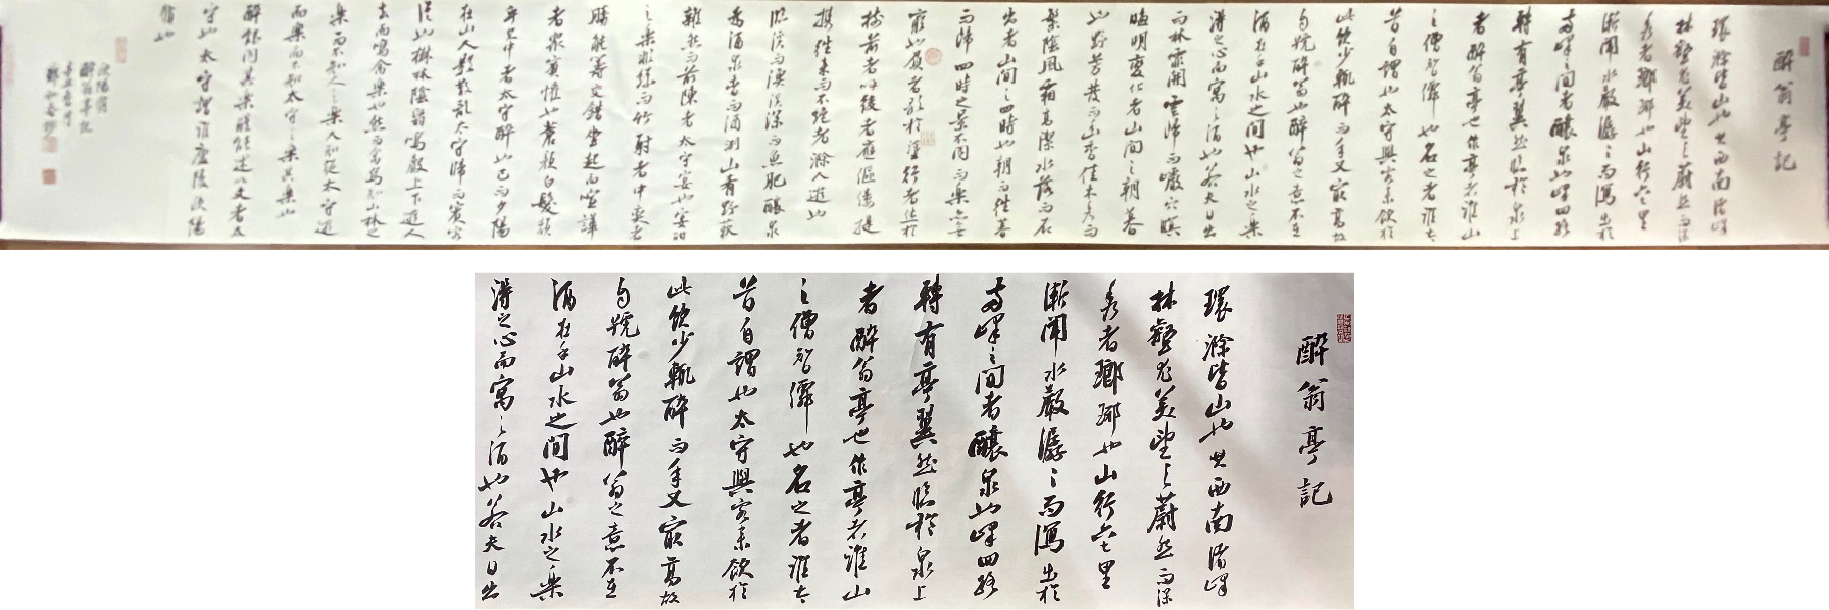 醉翁亭記
環滁皆山也其西南諸峰
林壑尤美望之蔚然而深
秀者瑯琊也山行六七里
漸聞水聲潺潺而瀉出於
兩峰之間者釀泉也峰回路
轉有亭翼然臨於泉上
者醉翁亭也作亭者誰山
之僧智僊也名之者誰太
守自謂也太守與客來飲於
此飲少輒醉而年又最高故
自號醉翁也醉翁之意不在
酒在乎山水之間也山水之樂
得之心而寓之酒也若夫日出
而林霏開雲歸而巖穴暝
晦明變化者山間之朝暮
也野芳發而幽香佳木秀而
繁陰風霜高潔水落而石
出者山間之四時也朝而往暮
而歸四時之景不同而樂亦無
窮也負者歌於塗行者休於
樹前者呼後者應傴僂提
攜往來而不絕者滁人遊也
臨溪而漁溪深而魚肥釀泉
為酒泉香而酒洌山肴野蔌
雜然而前陳者太守宴也宴酣
之樂非絲非竹射者中奕者
勝觥籌交錯坐起而諠譁
者眾賓懽也蒼顏白髮頹
乎其中者太守醉也已而夕陽
在山人影散亂太守歸而賓客
從也樹林陰翳鳴聲上下遊人
去而禽鳥樂也然而禽鳥知山林之
樂而不知人之樂人知從太守遊
而樂而不知太守之樂其樂也
醉能同其樂醒能述以文者太
守也太守謂誰廬陵歐陽
脩也
歐陽脩
醉翁亭記
醉翁亭記
環滁皆山也其西南諸峰
林壑尤美望之蔚然而深
秀者瑯琊也山行六七里
漸聞水聲潺潺而瀉出於
兩峰之間者釀泉也峰回路
轉有亭翼然臨於泉上
者醉翁亭也作亭者誰山
之僧智僊也名之者誰太
守自謂也太守與客來飲於
此飲少輒醉而年又最高故
自號醉翁也醉翁之意不在
酒在乎山水之間也山水之樂
得之心而寓之酒也若夫日出